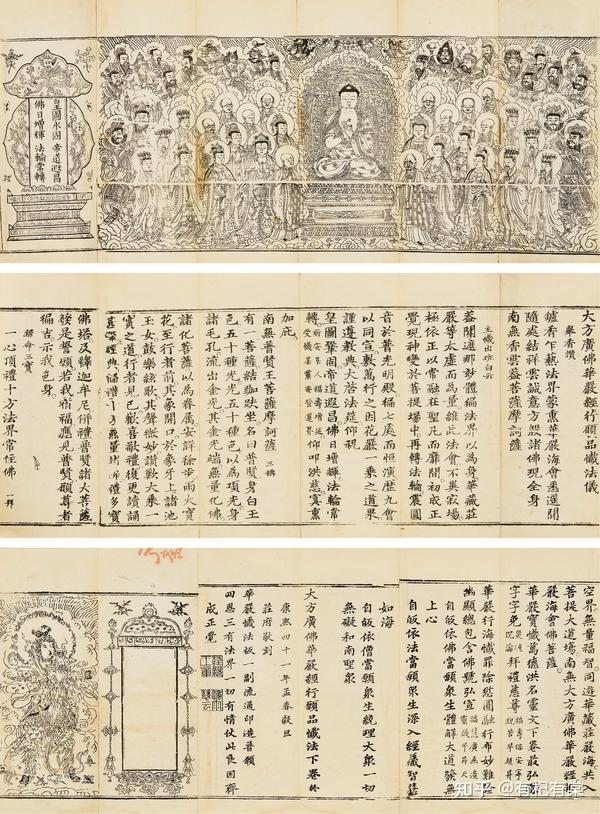 皇圖永固 帝道遐昌
佛日增輝 法輪常轉
大方廣佛華嚴經行願品懺法儀
舉香讚
爐香乍爇法界蒙熏華嚴海會悉遥聞
隨處結祥雲誠意方殷諸佛現全身
南無香雲蓋菩薩摩訶薩
主懺出班白云
葢聞遮那妙體徧法界以為身華藏莊
嚴等太虛而為量雖此法會不異寂場
極依正以常融在聖凡而靡間初成正
覺現神變於菩提場中再轉法輪震圓
音於普光明殿徧七處而恒演歷九會
以同宣敷萬行之因花嚴一乗之道果
謹遵教典大啓法筵仰祝
皇圖鞏固帝道遐昌佛日增輝法輪常
轉 仰叩洪慈冀熏
加庇
南無普賢王菩薩摩訶薩 三稱
有一菩薩結跏趺坐名曰普賢身白玉
色五十種光光五十種色以為項光身
諸毛孔流出金光其金光端無量化佛
諸化菩薩以為眷屬安詳徐步雨大寶
花至行者前其象開口於象牙上諸池
玉女鼓樂絃歌其聲微妙讚歎大乗
實之道行者見已歡喜敬禮復更讀誦
甚深經典徧禮十方無量諸佛禮多寶
佛塔及釋迦牟尼併禮普賢諸大菩薩
發是誓願若我宿福應見普賢願尊者
徧吉示我色身
歸命三寶
一心頂禮十方法界常住佛 一拜
空界無量福智同遊華藏莊嚴海共入
菩提大道場南無大方廣佛華嚴經
嚴海會佛菩薩
華嚴寶懺萬德洪名靈文下卷最弘
字字免 拜禮慈尊
華嚴行海懺罪除愆圓融行布妙難
幽顯總包含佛號弘宣
自皈依佛當願衆生體解大道發無
上心
自皈依法當願衆生深入經藏智慧
如海
自皈依僧當願衆生統理大衆一切
無礙和南聖衆
大方廣佛華嚴經行願品懺法下卷終
康熙四十一年孟春穀旦
莊府敬刻
華嚴懺法板一副流通印造普願
四恩三有法界一切有情仗此良因齊
成正覺
知乎 @有杞有棠